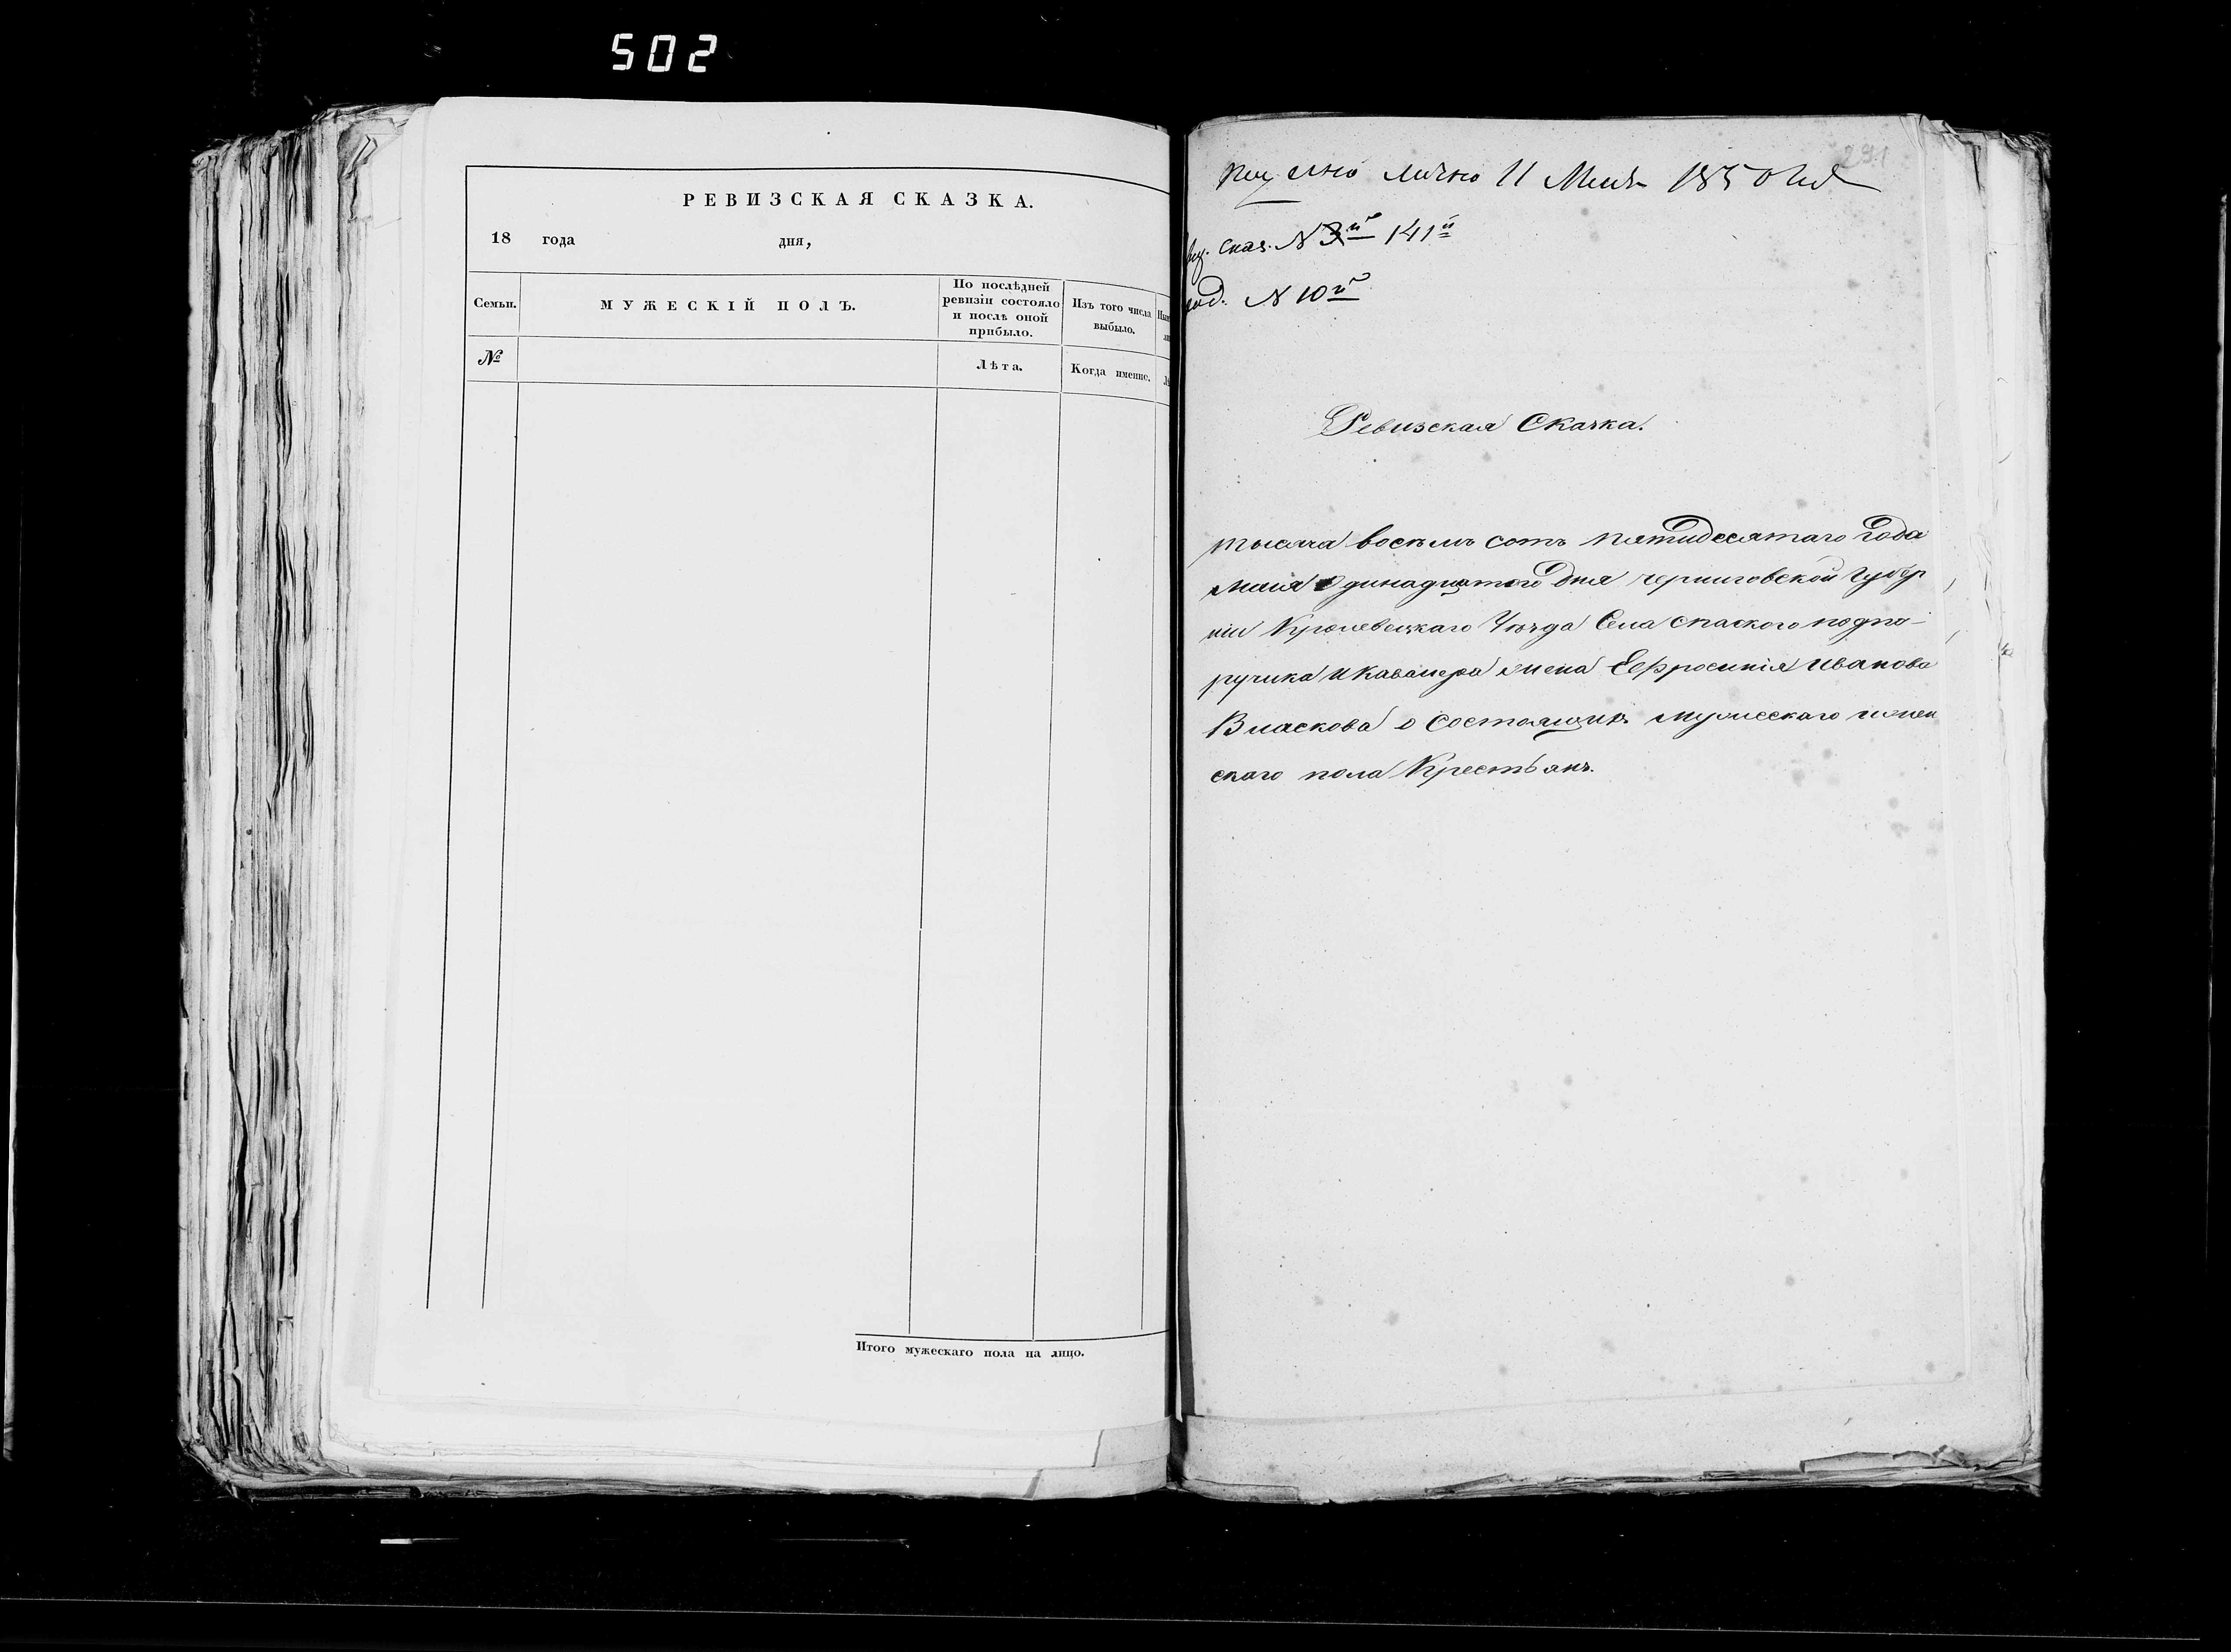 502
РЕВИЗСКАЯ СКАЗКА.
18 года дня,
Семьи.
МУЖЕСКІЙ ПОЛЪ.
По послѣдней
ревизіи состояло
и послѣ оной
прибыло.
Изъ того числа
выбыло.
№
Лѣта.
Когда именно.
Итого мужескаго пола на лицо.
291
лично 11 Мая 1850 год
сказ. N 3й 141й
N 10й
Ревизская Сказка.
тысяча восемь сотъ пятидесятаго года
маия Одинадцатого дня черниговской Губер
ніи Кролевецкаго Уѣзда Села Спаского подпо-
ручика и кавалера жена Ефросинія Иванова
Власкова о состоящихъ мужескаго и жен
скаго пола Крестьянъ.